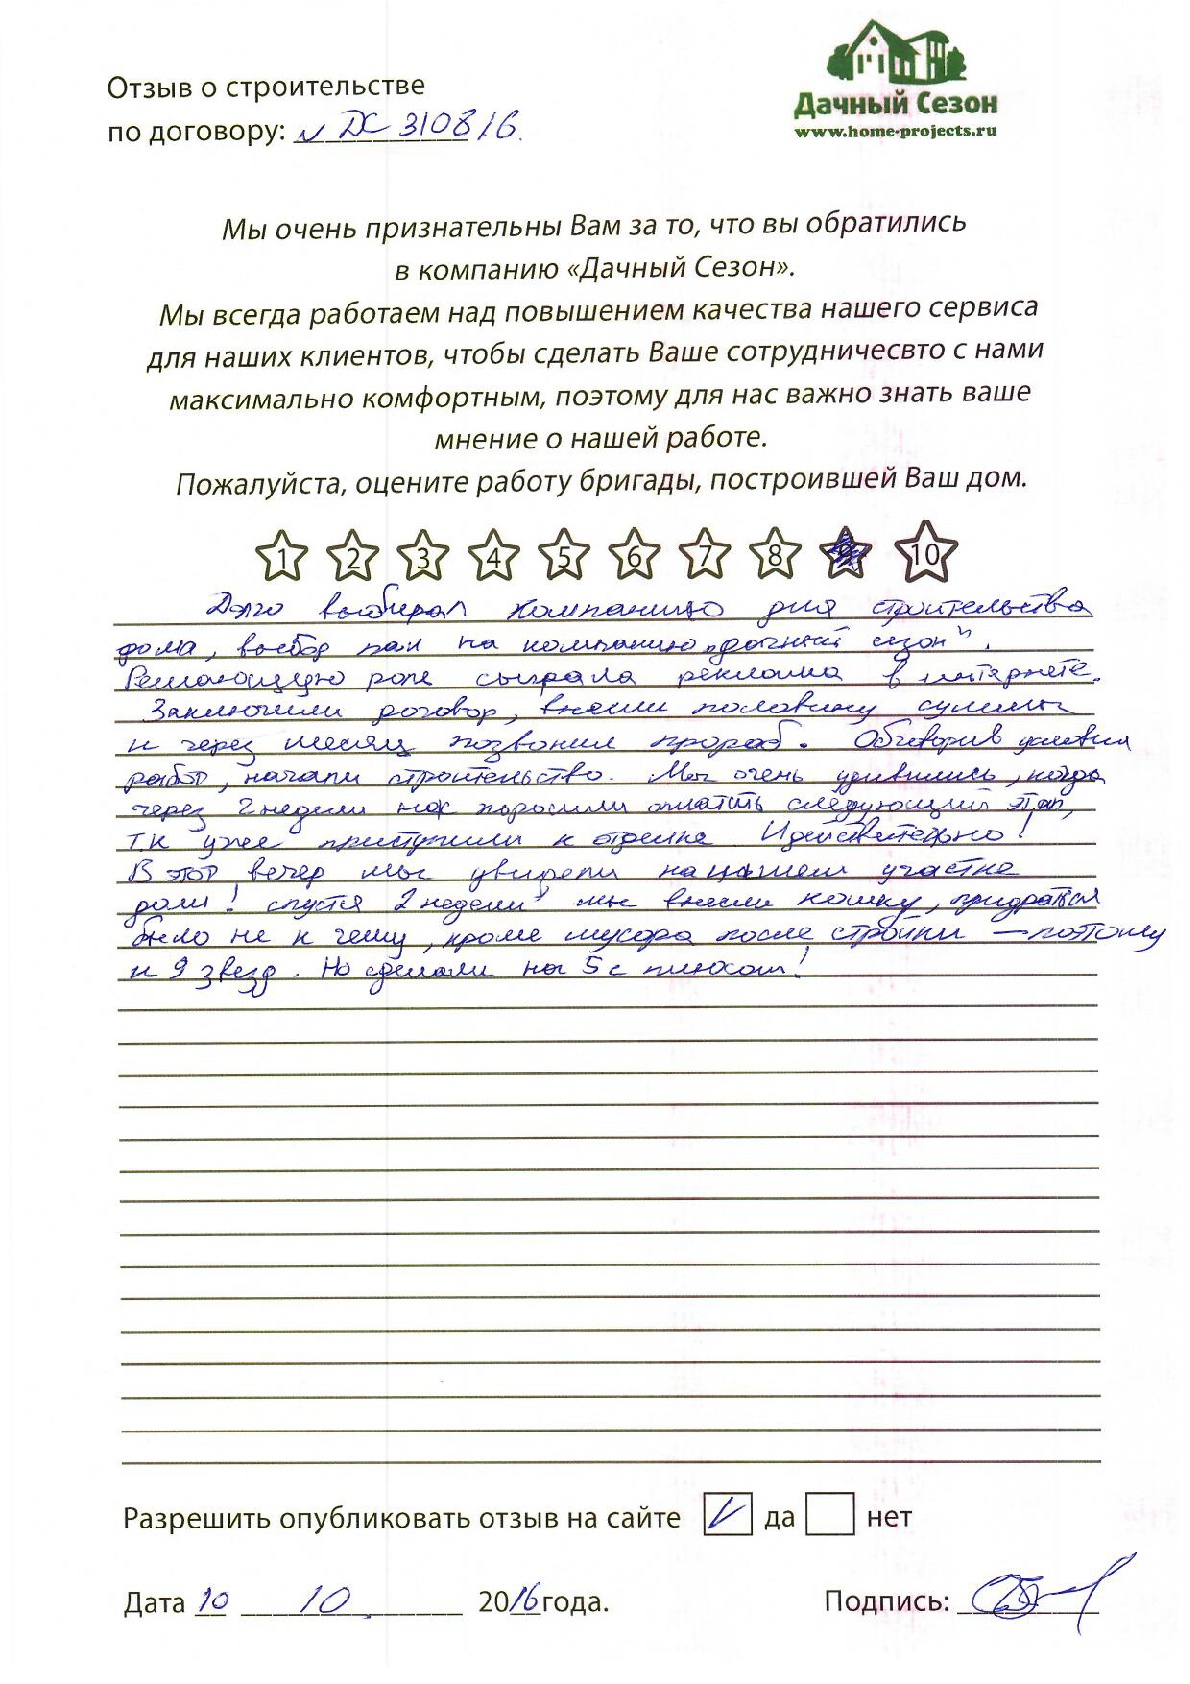 Дачный Сезон
www.home-projects.ru
Отзыв о строительстве
по договору: № ДС 310816.
Мы очень признательны Вам за то, что вы обратились
в компанию «Дачный Сезон».
Мы всегда работаем над повышением качества нашего сервиса
для наших клиентов, чтобы сделать Ваше сотрудничесвто с нами
максимально комфортным, поэтому для нас важно знать ваше
мнение о нашей работе.
Пожалуйста, оцените работу бригады, построившей Ваш дом.
1 2 3 4 5 6 7 8 9 10
Долго выбирал компанию для строительства
дома, выбор пал на компанию „дачный сезон".
Решающую роль сыграла реклама в интернете.
Заключили договор, внесли половину суммы
и через месяц позвонил прораб. Обговорив условия
работ, начали строительство. Мы очень удивились, когда
через 2 недели нас попросили оплатить следующий этап,
т.к уже приступили к отделке. И действительно!
В этот вечер мы увидели на нашем участке
дом! спустя 2 недели мы внесли кошку, придраться
было не к чему, кроме мусора после стройки — поэтому
и 9 звезд. Но сделали на 5 с плюсом!
Разрешить опубликовать отзыв на сайте V да нет
Дата 10 10 2016 года. Подпись: